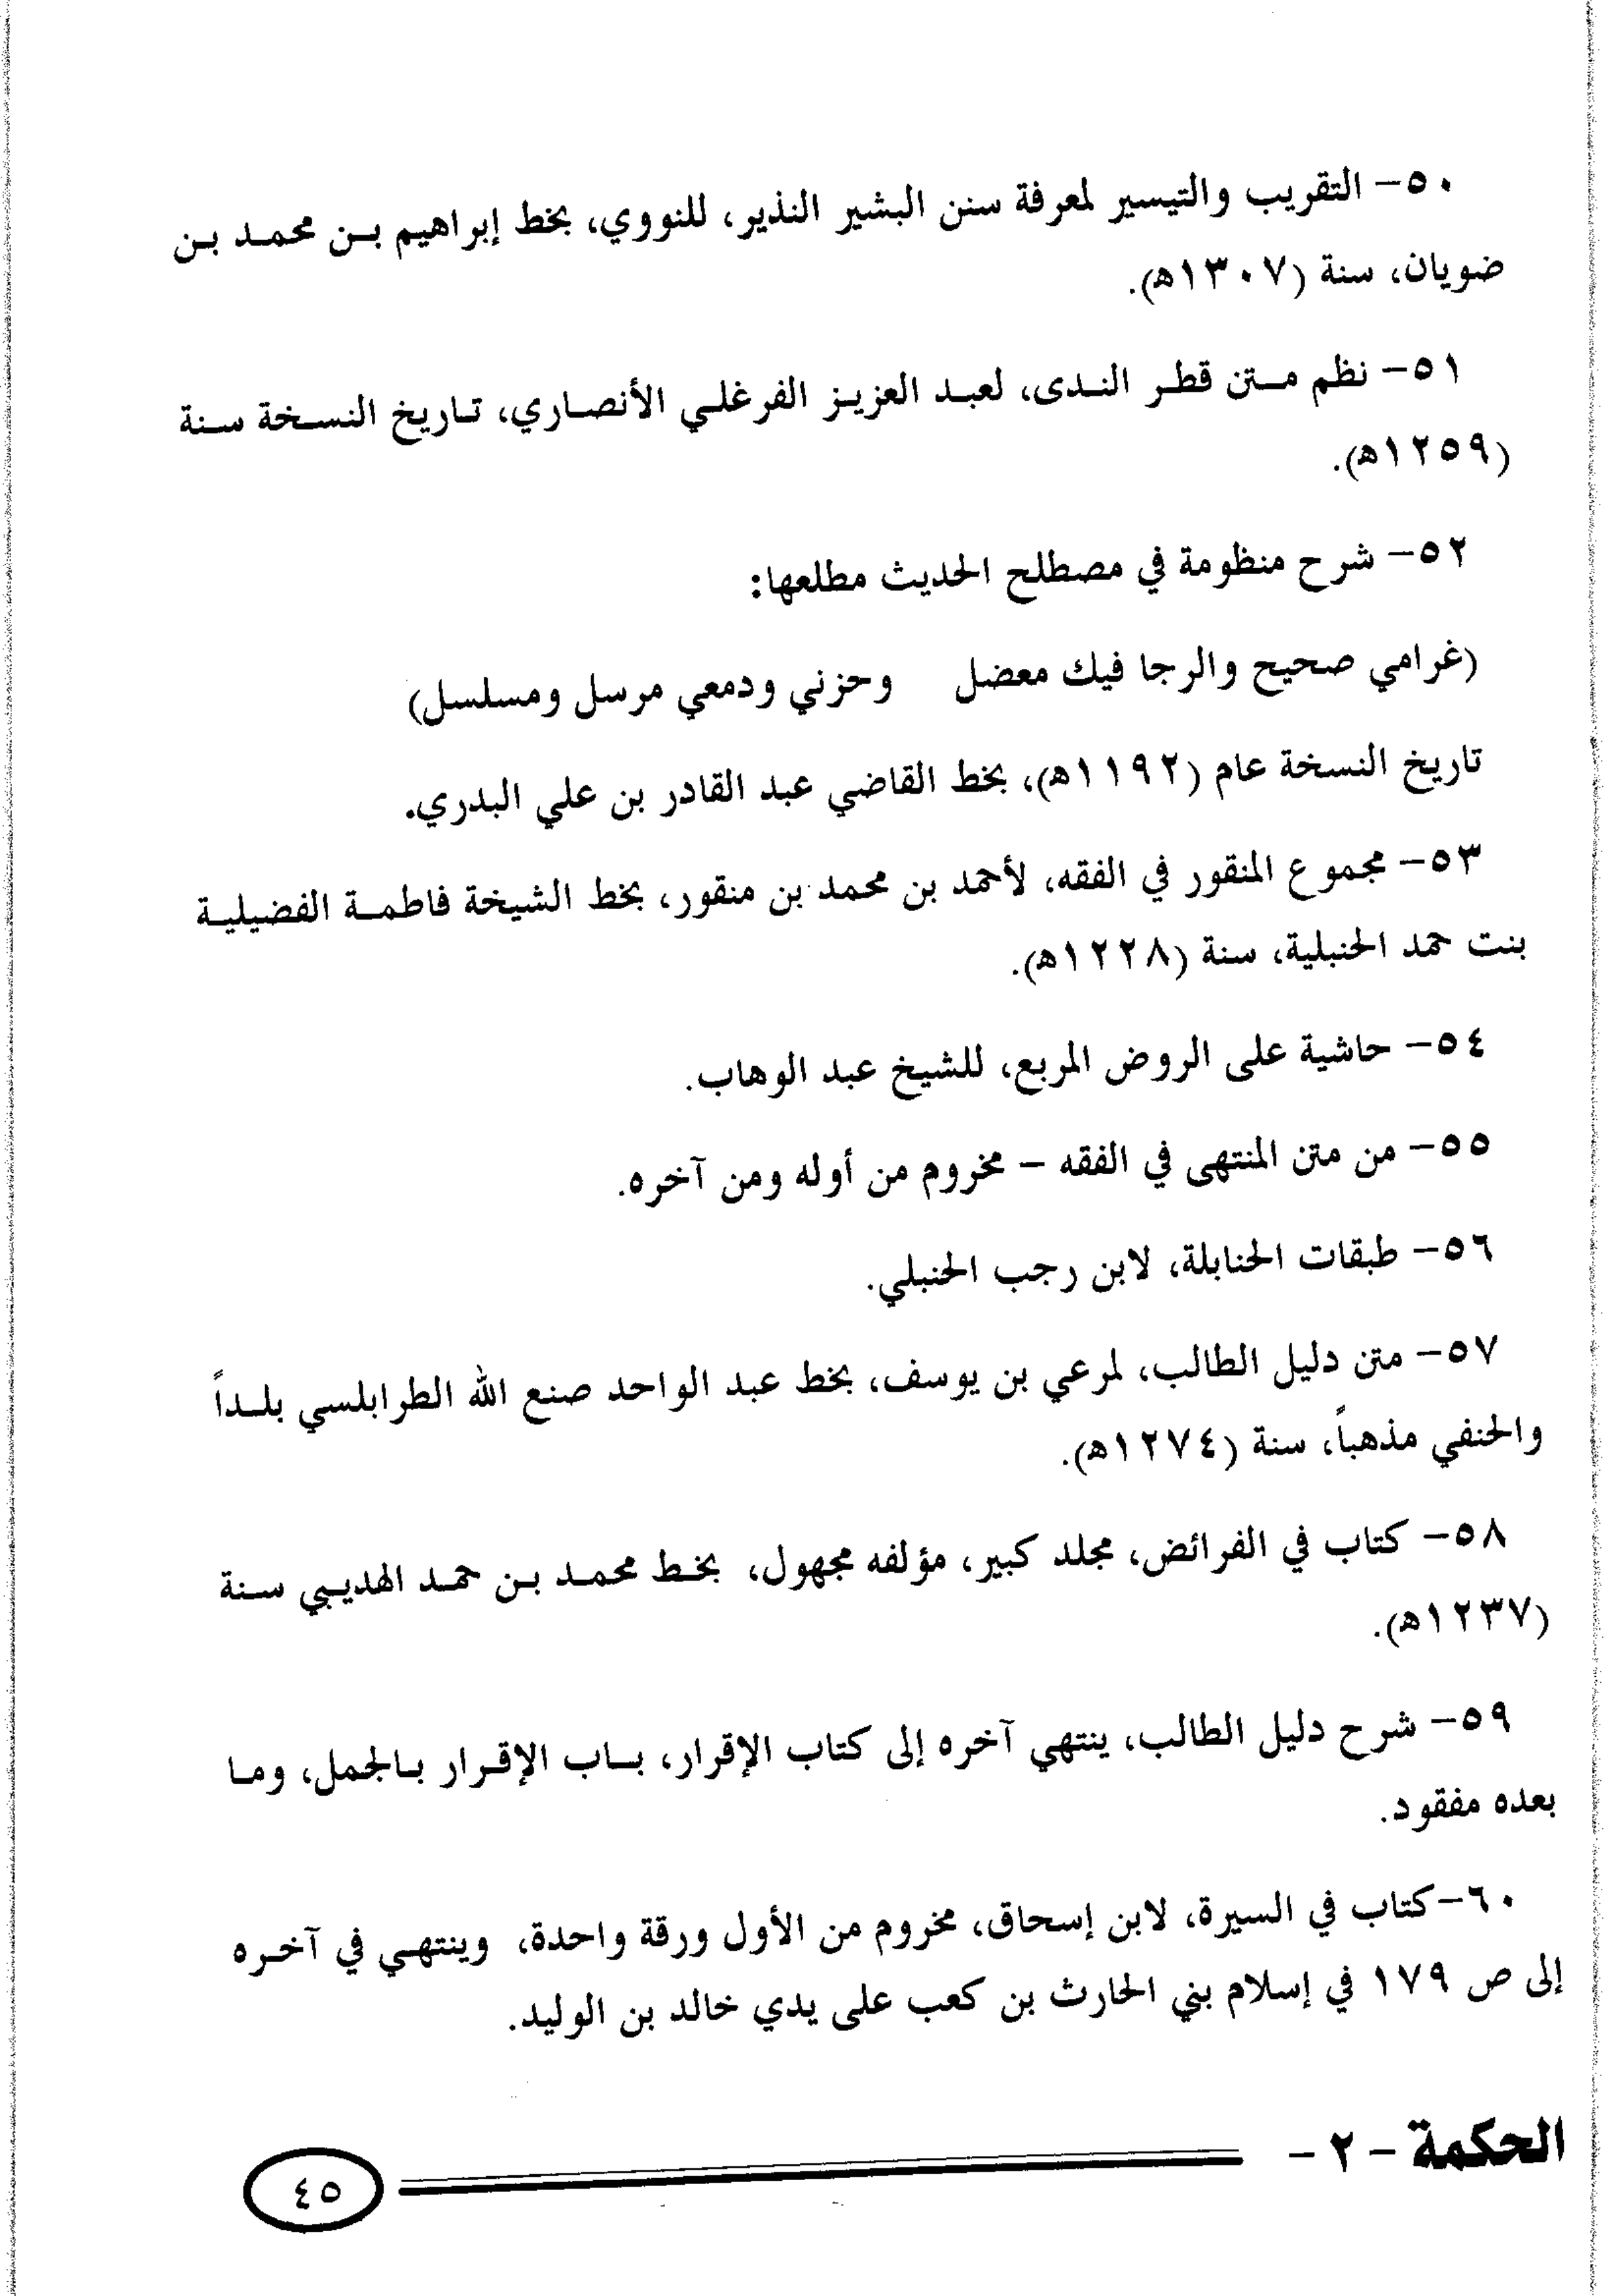 ٥٠- التقريب والتيسير لمعرفة سنن البشير النذير، للنووي، بخط إبراهيم بن محمد بن
ضويان، سنة (١٣٠٧ه).
٥١- نظم متن قطر الندى، لعبد العزيز الفرغلي الأنصاري، تاريخ النسخة سنة
(١٢٥٩ه).
٥٢- شرح منظومة في مصطلح الحديث مطلعها:
(غرامي صحيح والرجا فيك معضل وحزني ودمعي مرسل ومسلسل)
تاريخ النسخة عام (١١٩٢ه)، بخط القاضي عبد القادر بن علي البدري.
٥٣- مجموع المنقور في الفقه، لأحمد بن محمد بن منقور، بخط الشيخة فاطمة الفضيلية
بنت حمد الحنبلية، سنة (١٢٢٨ه).
٥٤- حاشية على الروض المربع، للشيخ عبد الوهاب.
٥٥- من متن المنتهى في الفقه - مخروم من أوله ومن آخره.
٥٦- طبقات الحنابلة، لابن رجب الحنبلي.
٥٧- متن دليل الطالب، لمرعي بن يوسف، بخط عبد الواحد صنع الله الطرابلسي بلداً
والحنفي مذهباً، سنة (١٢٧٤ه).
٥٨- كتاب في الفرائض، مجلد كبير، مؤلفه مجهول، بخط محمد بن حمد الهديبي سنة
(١٢٣٧ه).
٥٩- شرح دليل الطالب، ينتهي آخره إلى كتاب الإقرار، باب الإقرار بالجمل، وما
بعده مفقود.
٦٠-كتاب في السيرة، لابن إسحاق، مخروم من الأول ورقة واحدة، وينتهي في آخره
إلى ص ١٧٩ في إسلام بني الحارث بن كعب على يدي خالد بن الوليد.
الحكمة - ٢ -
٤٥